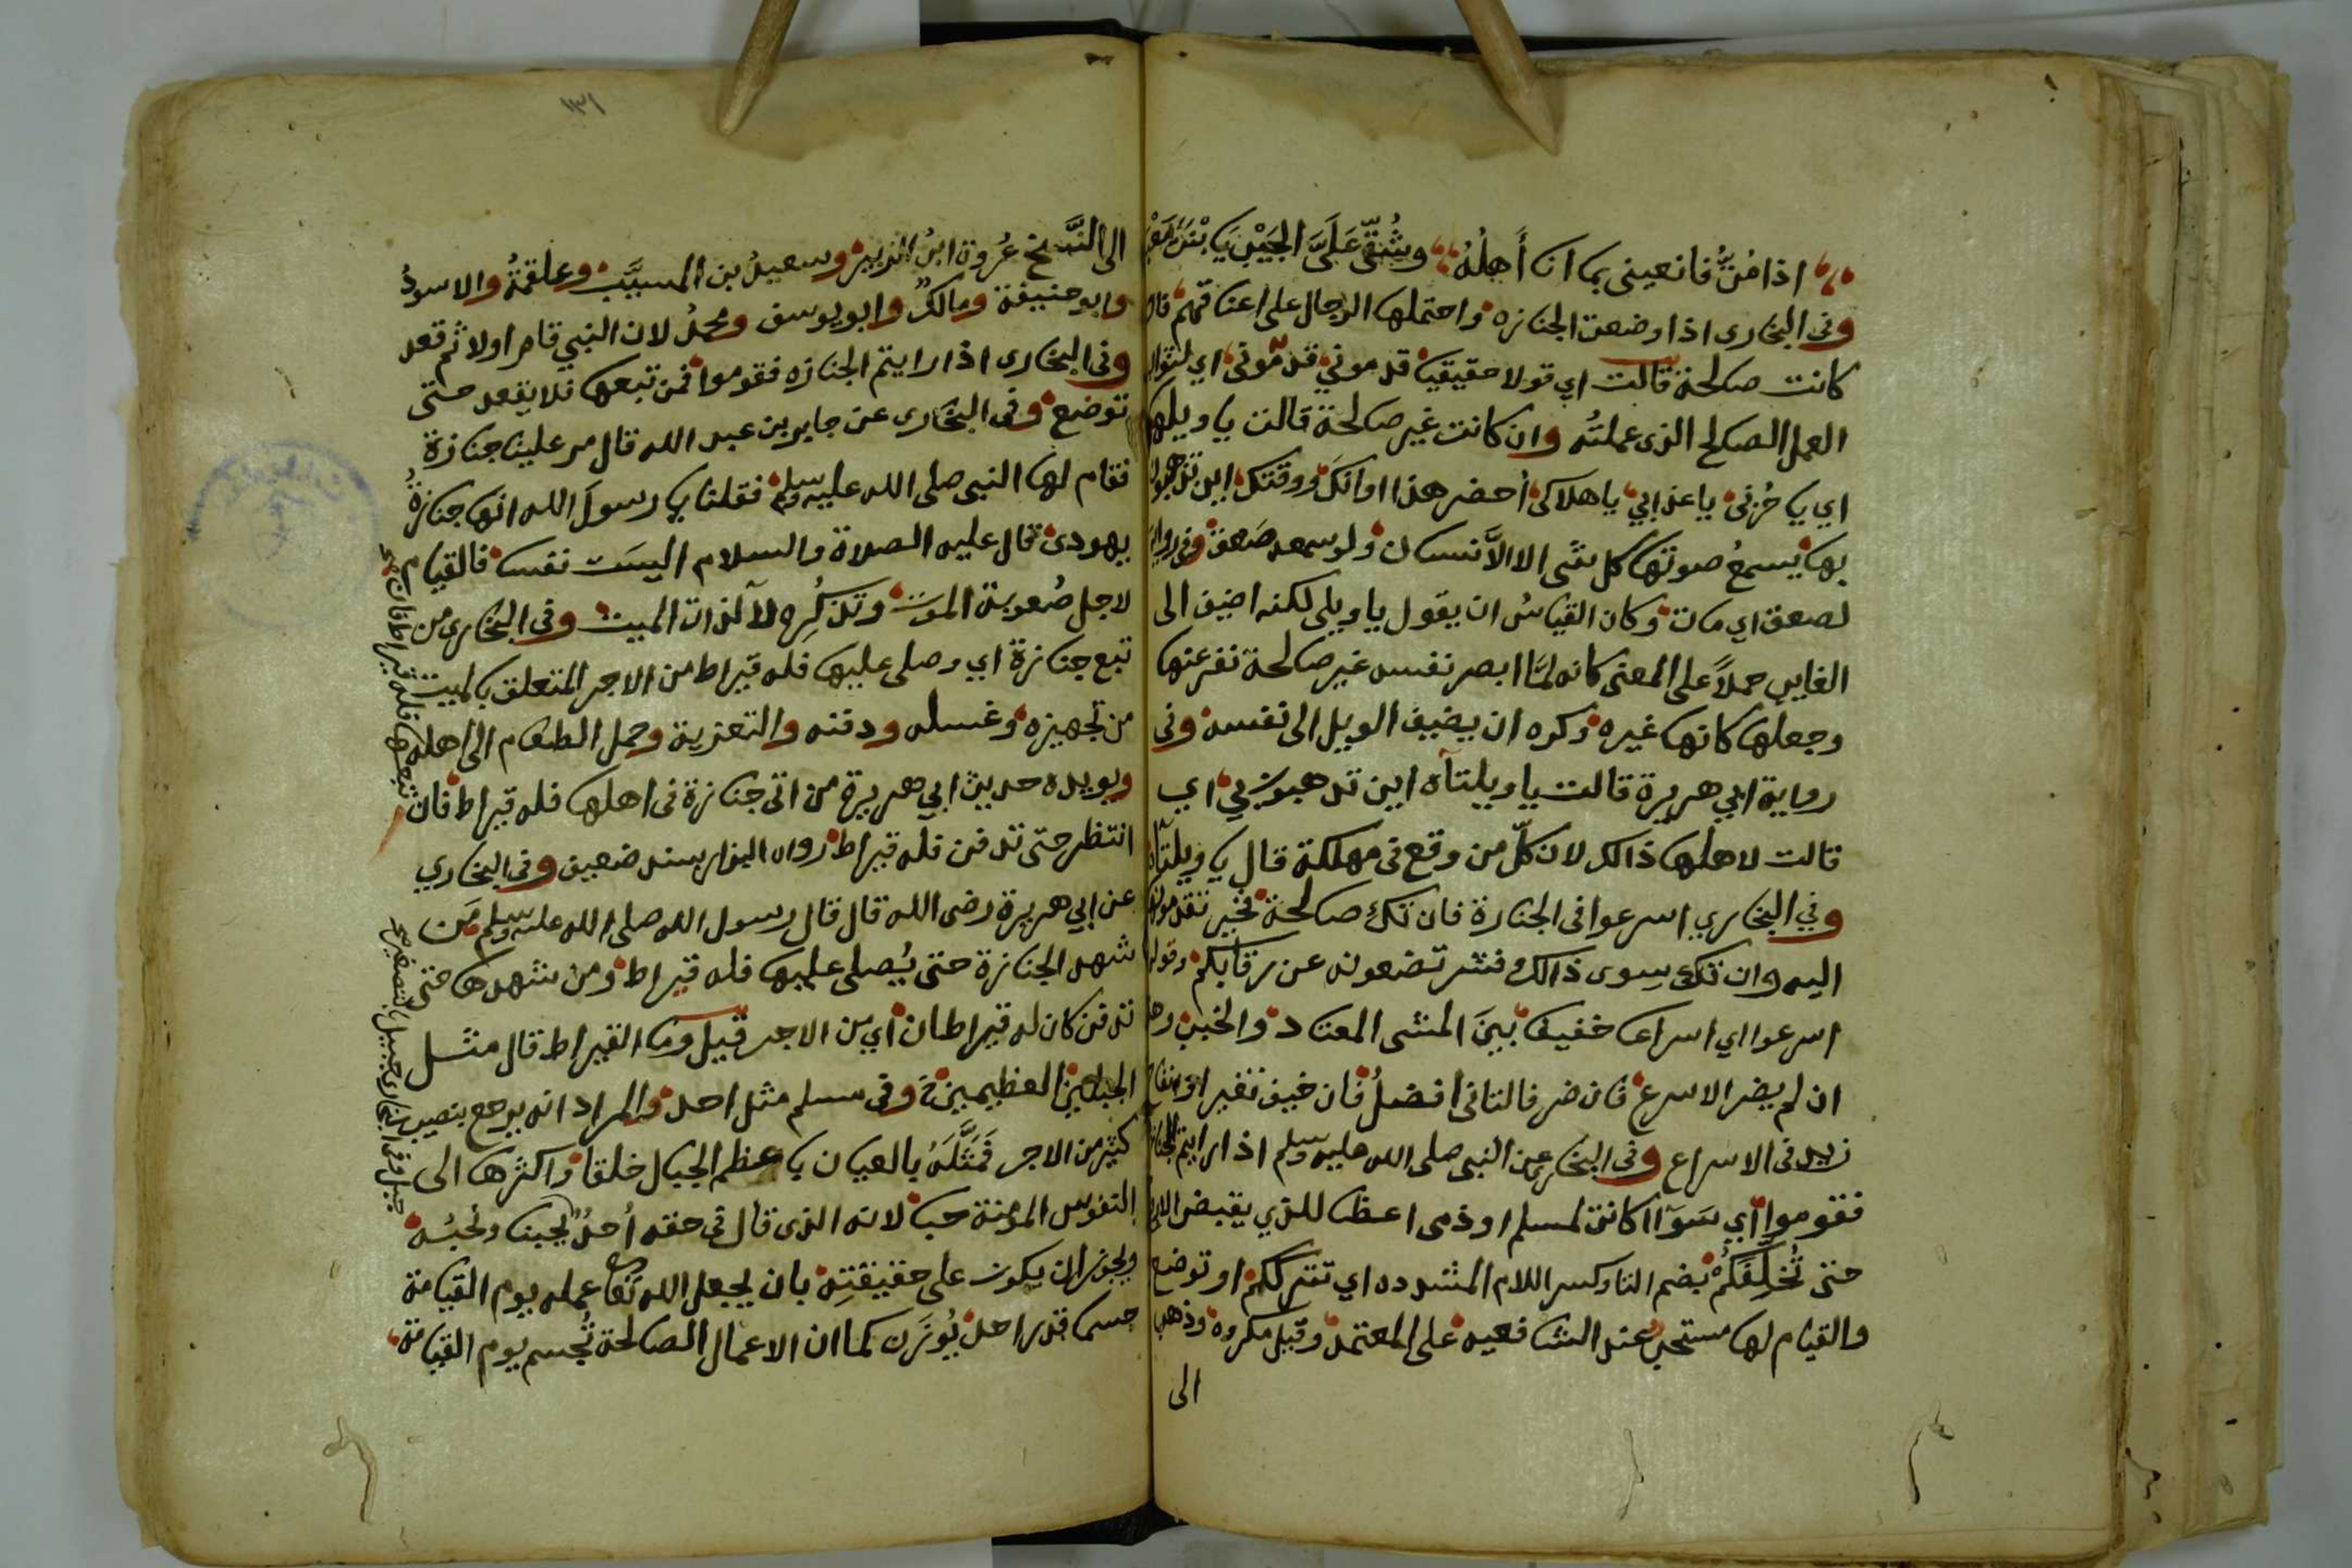 اذا مُتُّ فانعينى بما انا أَهلُهُ وشُقِّى عَلَىَّ الجَيْبَ يَا بْنَةَ مَعْبَد
وفى البخارى اذا وضعت الجنازه واحتملها الرجال على اعناقهم فان
كانت صالحة قالت اي قولا حقيقيا قدمونى قدمونى اي لثواب
العمل الصالح الذى عملته وان كانت غير صالحة قالت يا ويلها
اي يا حُزنى يا عذابي يا هلاكى أحضر هذا اوانكَ ووقتك اين تذهبون
بها يسمعُ صوتها كل شى الا الاَّنسان ولو سمعه صَعق وفى رواية
لصعق اي مات وكان القياسُ ان يقول يا ويلى لكنه اضيف الى
الغايب حملاً على المعنى كانه لمَّا ابصر نفسه غير صالحة نفر عنها
وجعلها كانها غيره وكره ان يضيف الويل الى نفسه وفى
رواية ابي هريرة قالت يا ويلتاه اين تذهبون بي اي
قالت لاهلها ذالك لان كلّ من وقع فى مهلكة قال يا ويلتاه
وفي البخاري اسرعوا فى الجنازة فان تك صالحة فخير تقدمونها
اليه وان تكى سِوى ذالك فشر تضعونه عن رقابكم وقوله
اسرعوا اي اسراعا خفيفا بينَ المشى المعتاد والخبب وهذا
ان لم يضر الاسرع فان ضر فالتانى افضلُ فان خيف تغير او انتفاخ
زيد فى الاسراع وفى البخارى عن النبى صلى الله عليه وسلم اذا رايتم الجنازة
فقوموا أي سَوَآا كانت لمسلم او ذمى اعظاما للذي يقبض الارواح
حتى تُخَلِّفَكُمْ بضم التا وكسر اللام المشدده اي تترككم او توضع
والقيام لها مستحبٌ عند الشافعيه على المعتمد وقيل مكروه وذهب
الى
١٣١
الى النَّسخ عُروة ابنُ الزبير وسعيدُ بن المسيَّب وعلقمةُ والاسودُ
وابو حنيفة ومالكٌ وابو يوسف ومحمدٌ لان النبي قام اولا ثم قعد
وفى البخارى اذا رايتم الجنازه فقوموا فمن تبعها فلا يقعد حتى
توضع وفى البخارى عن جابر بن عبد الله قال مر علينا جنازة
فقام لها النبى صلى الله عليه وسلم فقلنا يا رسولَ الله انها جنازةُ
يهودى قال عليه الصلاة والسلام اليسَت نفسا فالقيام
لاجل صُعوبة الموت وتذكُرِه لا لذات الميت وفى البخاري من
تبع جنازة اي وصلى عليها فله قيراط من الاجر المتعلق بالميت
من تجهيزه وغسله ودفنه والتعزية وحمل الطعام الى اهله
ويويده حديث ابي هريرة من اتى جنازة فى اهلها فله قيراط فان
انتظر حتى تدفن فله قيراط رواه البزار بسند ضعيف وفى البخاري
عن ابي هريرة رضى الله قال قال رسول الله صلى الله عليه وسلم مَن
شهد الجنازة حتى يُصلى عليها فله قيراط ومن شهدها حتى
تدفن كان له قيراطان أي من الاجر قيل وما القيراط قال مثل
الجبلين العظيمين وفى مسلم مثل احد والمراد انه يرجع بنصيب
كثير من الاجر فَمَثَّلَهُ بالعيان باعظم الجبال خلقا واكثرها الى
النفوس المومنة حبا لانه الذى قال فى حقه أحدٌ يحبنا ونحبُه
ويجوز ان يكون على حقيقتِه بان يجعل الله تعا عمله يوم القيامة
جسما قدر احد يُوزَن كما ان الاعمال الصالحة تُجسم يوم القيامة
تبعها فله قيراط فان صح
جبل وفى البخارى جبيل بالتصغير صح